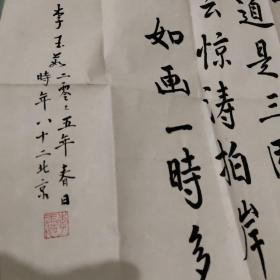 道是三
云惊涛拍岸
如画一時多
李玉 二零二五年春日
時年八十二北京